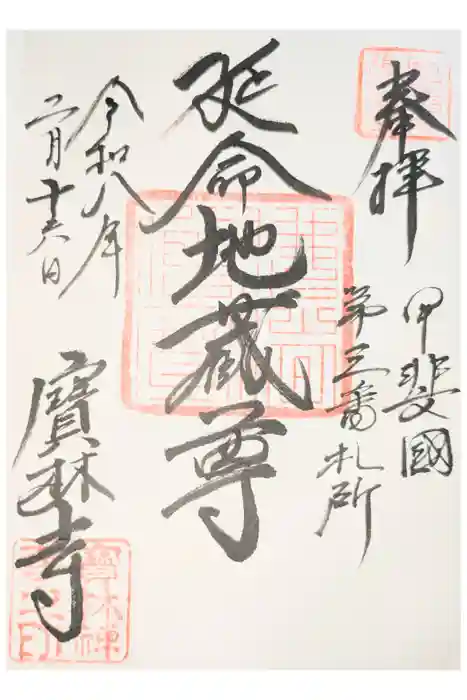 奉拝
甲斐國
第三番札所
延命地蔵尊
令和八年
二月十六日
寳林寺